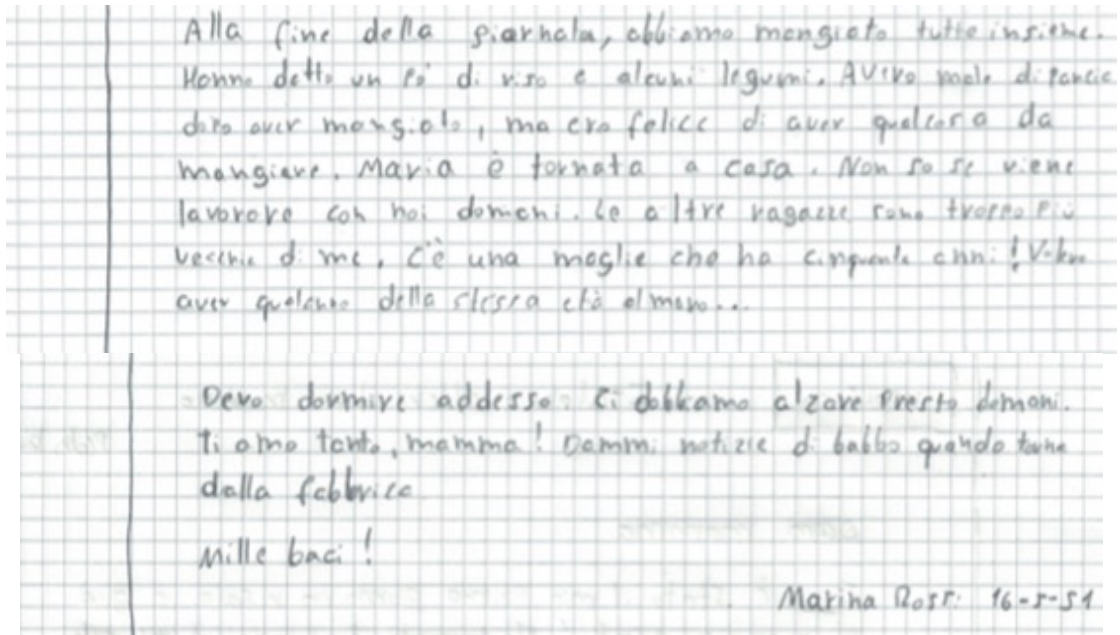 Alla fine della giornata, abbiamo mangiato tutte insieme.
Hanno detto un po' di riso e alcuni legumi. Avevo male di pancia
dopo aver mangiato, ma ero felice di aver qualcosa da
mangiare. Maria è tornata a casa. Non so se viene
lavorare con noi domani. Le altre ragazze sono troppo più
vecchie di me. C'è una moglie che ha cinquante anni! Volevo
aver qualcuno della stessa età almeno...
Devo dormire addesso. Ci dobbiamo alzare presto domani.
Ti amo tanto, mamma! Dammi notizie di babbo quando torna
dalla fabbrica
Mille baci!
Marina Rossi 16-5-51